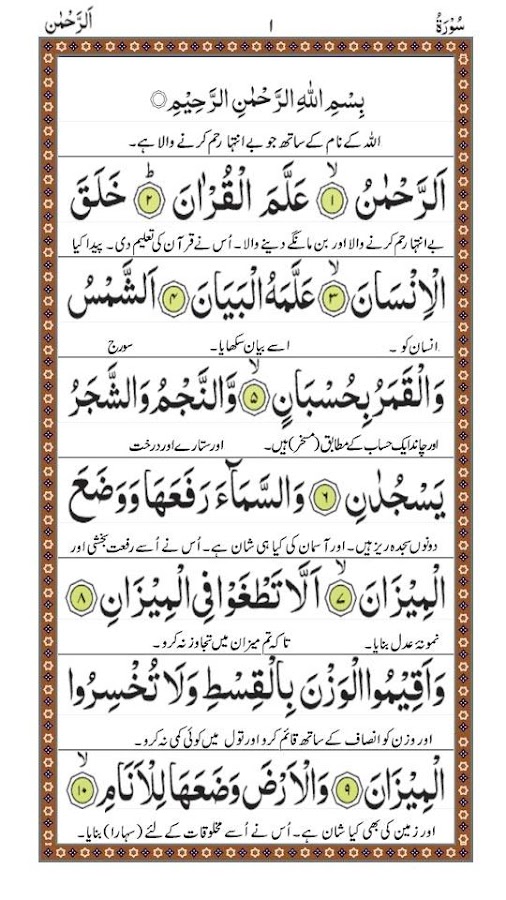 سُوْرَةُ ١ اَلرَّحْمٰن
بِسْمِ اللّٰهِ الرَّحْمٰنِ الرَّحِيْمِ
اللہ کے نام کے ساتھ جو بے انتہا رحم کرنے والا ہے۔
اَلرَّحْمٰنُ ۙ﴿۱﴾ عَلَّمَ الْقُرْاٰنَ ؕ﴿۲﴾ خَلَقَ
بے انتہا رحم کرنے والا اور بن مانگے دینے والا۔ اُس نے قرآن کی تعلیم دی۔ پیدا کیا
الْاِنْسَانَ ۙ﴿۳﴾ عَلَّمَهُ الْبَيَانَ ﴿۴﴾ اَلشَّمْسُ
انسان کو۔ اسے بیان سکھایا۔ سورج
وَالْقَمَرُ بِحُسْبَانٍ ۙ﴿۵﴾ وَّالنَّجْمُ وَالشَّجَرُ
اور چاند ایک حساب کے مطابق (مسخر) ہیں۔ اور ستارے اور درخت
يَسْجُدٰنِ ﴿۶﴾ وَالسَّمَآءَ رَفَعَهَا وَوَضَعَ
دونوں سجدہ ریز ہیں۔ اور آسمان کی کیا ہی شان ہے۔ اُس نے اُسے رفعت بخشی اور
الْمِيْزَانَ ۙ﴿۷﴾ اَلَّا تَطْغَوْا فِي الْمِيْزَانِ ﴿۸﴾
نمونۂ عدل بنایا۔ تا کہ تم میزان میں تجاوز نہ کرو۔
وَاَقِيْمُوا الْوَزْنَ بِالْقِسْطِ وَلَا تُخْسِرُوا
اور وزن کو انصاف کے ساتھ قائم کرو اور تول میں کوئی کمی نہ کرو۔
الْمِيْزَانَ ﴿۹﴾ وَالْاَرْضَ وَضَعَهَا لِلْاَنَامِ ۙ﴿۱۰﴾
اور زمین کی بھی کیا شان ہے۔ اُس نے اُسے مخلوقات کے لئے (سہارا) بنایا۔